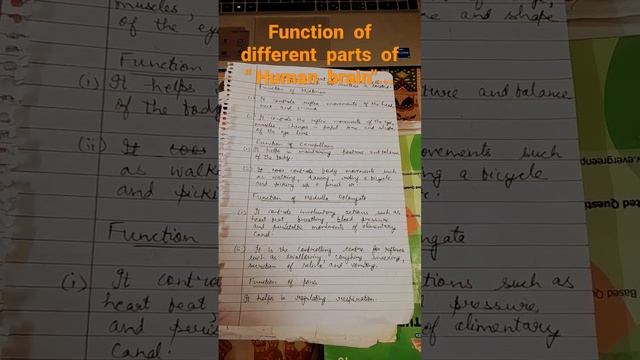 Function of
different parts of
" Human brain"...
Function of Midbrain
(i) It controls reflex movements of the head,
neck and
(ii) It controls the reflex movements of the eye
muscles, changes in pupil size and shape
of the eye lens.
Function of Cerebellum
(i) It helps in maintaining posture and balance
of the body.
(ii) It controls body movements such
as walking, dancing, riding a bicycle
and picking up a pencil
Function of Medulla Oblongata
(i) It controls involuntary actions such as
heart beat, breathing, blood pressure
and peristaltic movements of alimentary
canal.
(ii) It is the controlling centre for reflexes
such as swallowing, coughing, sneezing,
secretion of saliva and vomiting.
Function of pons
It helps in regulating respiration.
muscles,
of the eye
Function
(i) It helps
of the body
(ii) It
as walk
and picki
Function
(i) It contro
heart beat
and peris
canal.
and shape
ture and balance
ovements such
ng a bicycle
gata
tions such as
pressure
of alimentary
evergreen
ted Questi
Based Qu